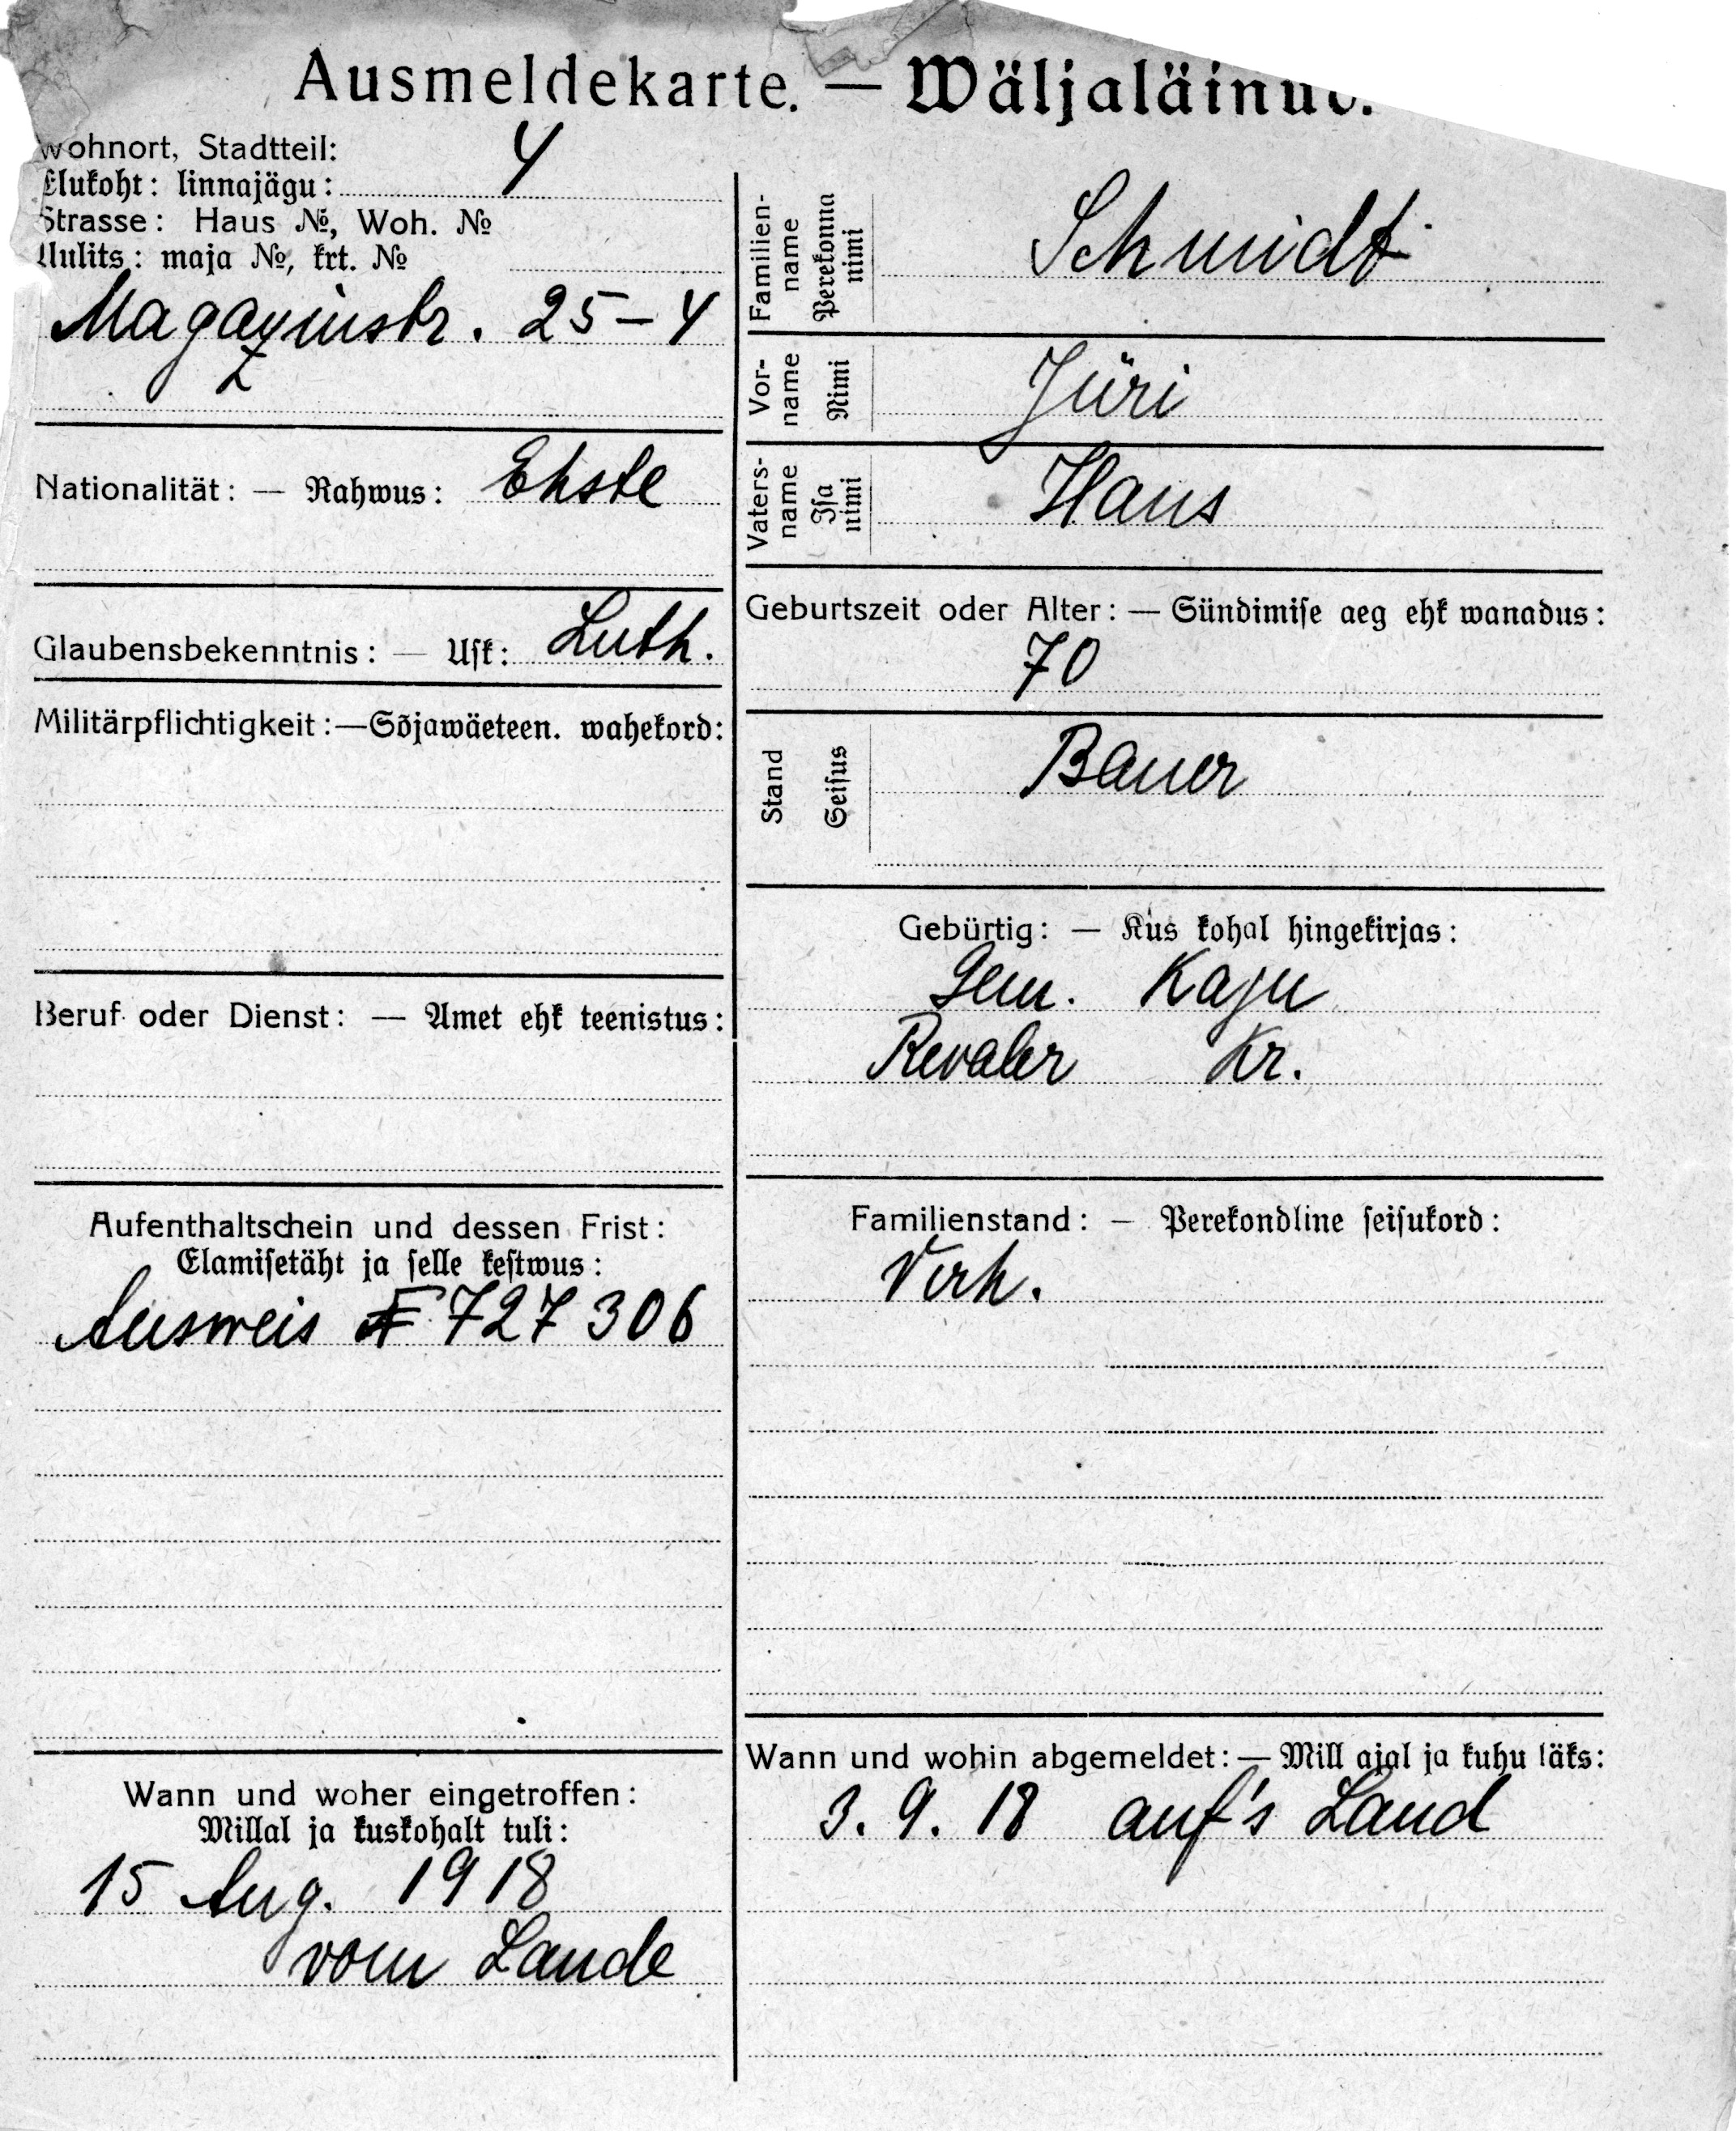 Ausmeldekarte. — Wäljaläinud.
Wohnort, Stadtteil:
Elukoht: linnajägu: 4
Strasse: Haus №, Woh. №
Uulits: maja №, krt. №
Magazinstr. 25-4
Nationalität: — Rahwus: Ehste
Glaubensbekenntnis: — Usk: Luth.
Militärpflichtigkeit: — Sõjawäeteen. wahekord:
Beruf oder Dienst: — Amet ehk teenistus:
Aufenthaltschein und dessen Frist:
Elamisetäht ja selle kestwus:
Ausweis F 727306
Wann und woher eingetroffen:
Millal ja kuskohalt tuli:
15 Aug. 1918
vom Lande
Familien-
name
Perekonna
nimi
Schmidt
Vor-
name
Nimi
Jüri
Vaters-
name
Isa
nimi
Hans
Geburtszeit oder Alter: — Sündimise aeg ehk wanadus:
70
Stand
Seisus
Bauer
Gebürtig: — Kus kohal hingekirjas:
Gem. Kaju
Revaler Kr.
Familienstand: — Perekondline seisukord:
Verh.
Wann und wohin abgemeldet: — Mill ajal ja kuhu läks:
3. 9. 18 auf's Land